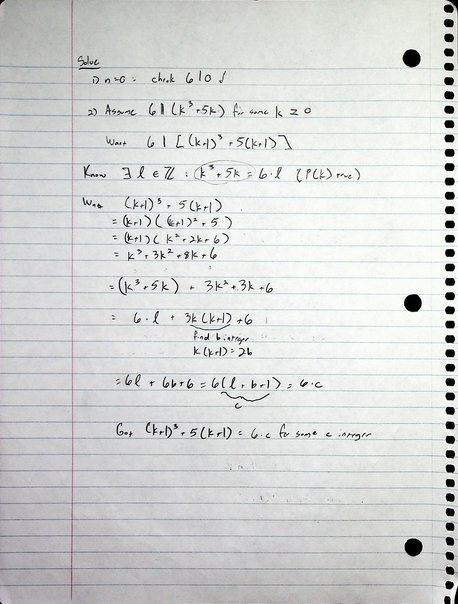 Solve
1) n=0 : check 6|0 ✓
2) Assume 6 | (k³+5k) for some k ≥ 0
Want 6 | [(k+1)³ + 5(k+1)]
Know ∃ l ∈ ℤ : k³ + 5k = 6·l {P(k) true}
Write (k+1)³ + 5(k+1)
= (k+1)((k+1)² + 5)
= (k+1)(k² + 2k + 6)
= k³ + 3k² + 8k + 6
= (k³ + 5k) + 3k² + 3k + 6
= 6·l + 3k(k+1) + 6
find b integer
k(k+1) = 2b
= 6l + 6b + 6 = 6(l + b + 1) = 6·c
c
Got (k+1)³ + 5(k+1) = 6·c for some c integer